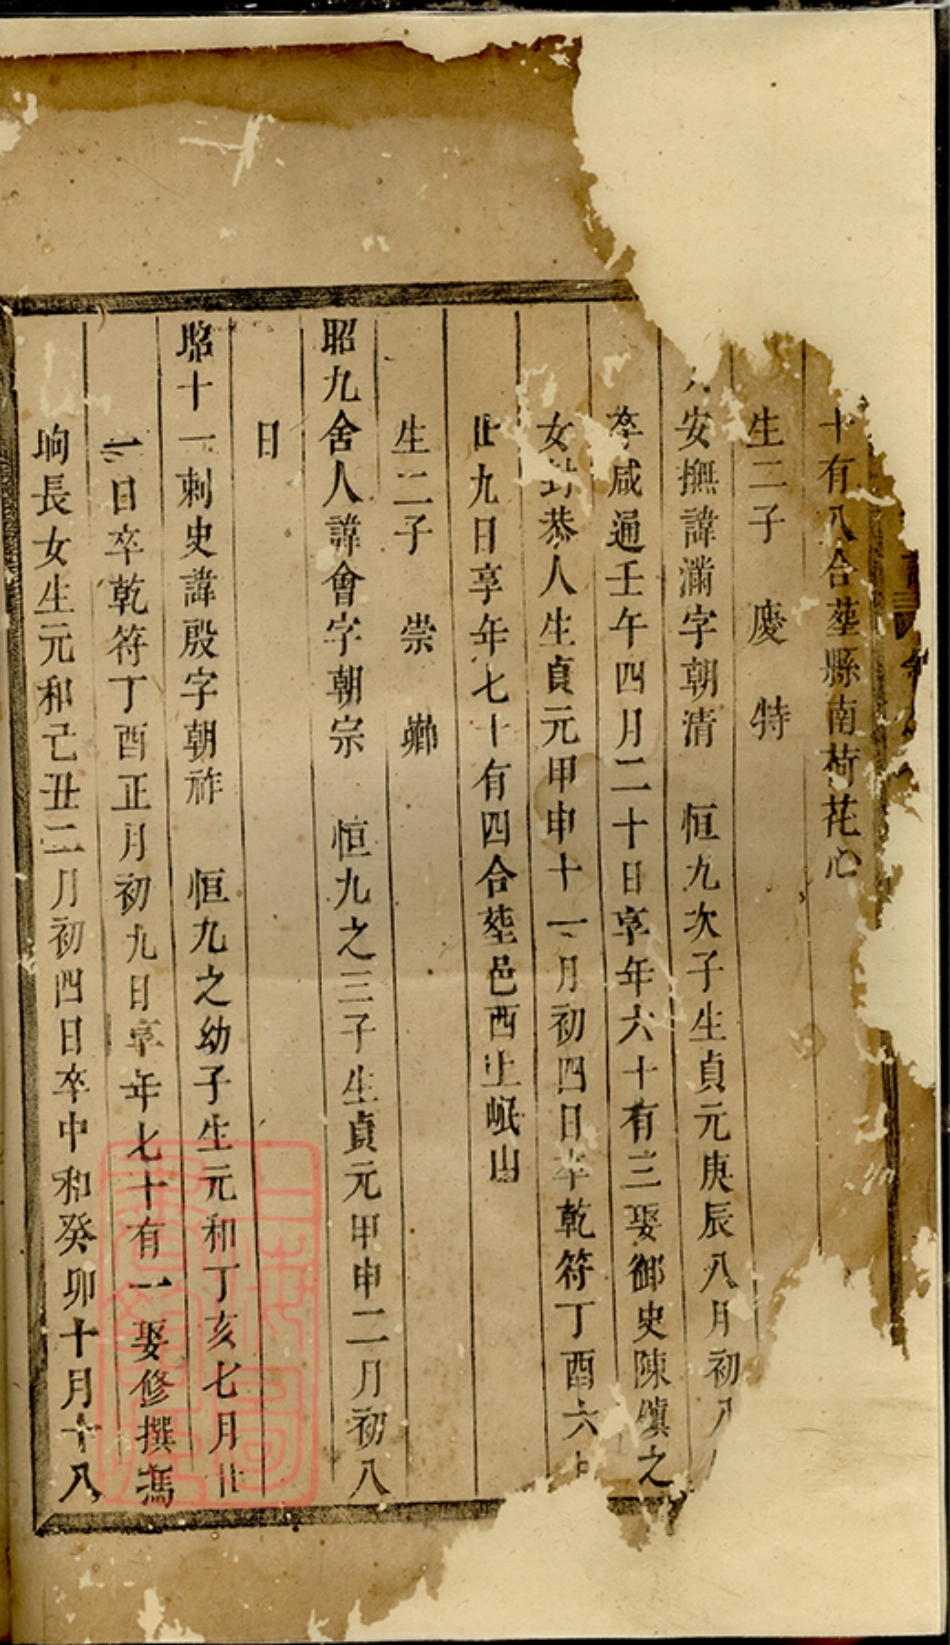 十有八合塟縣南荷花心
生二子　慶　特
安撫諱滿字朝清　恒九次子生貞元庚辰八月初八
卒咸通壬午四月二十日享年六十有三娶御史陳縝之
女封恭人生貞元甲申十一月初四日卒乾符丁酉六
廿九日享年七十有四合塟邑西上岷山
生二子　崇　卿
昭九舍人諱會字朝宗　恒九之三子生貞元甲申二月初八
日
昭十一刺史諱殷字朝祚　恒九之幼子生元和丁亥七月廿
二日卒乾符丁酉正月初九日享年七十有一娶修撰馮
垧長女生元和己丑二月初四日卒中和癸卯十月十八
上海圖書館藏